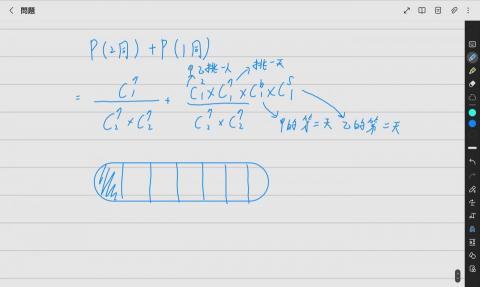 問題
P(2同) + P(1同)
甲乙挑一人 挑一天
= C₁⁷ / C₂⁷ × C₂⁷ + C₁² × C₁⁷ × C₁⁶ × C₁⁵ / C₂⁷ × C₂⁷
甲的第二天 乙的第二天